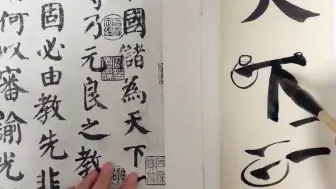 天
下
國儲為天下
乃元良之教
固必由教先非
何以審諭光